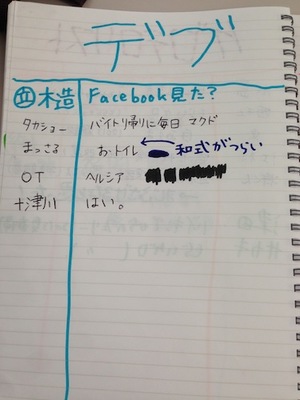 デブ
木造 Facebook見た?
タカショー バイトリ帰りに毎日 マクド
まっさる お・トイレ ← 和式がつらい
OT ヘルシア
十津川 はい。